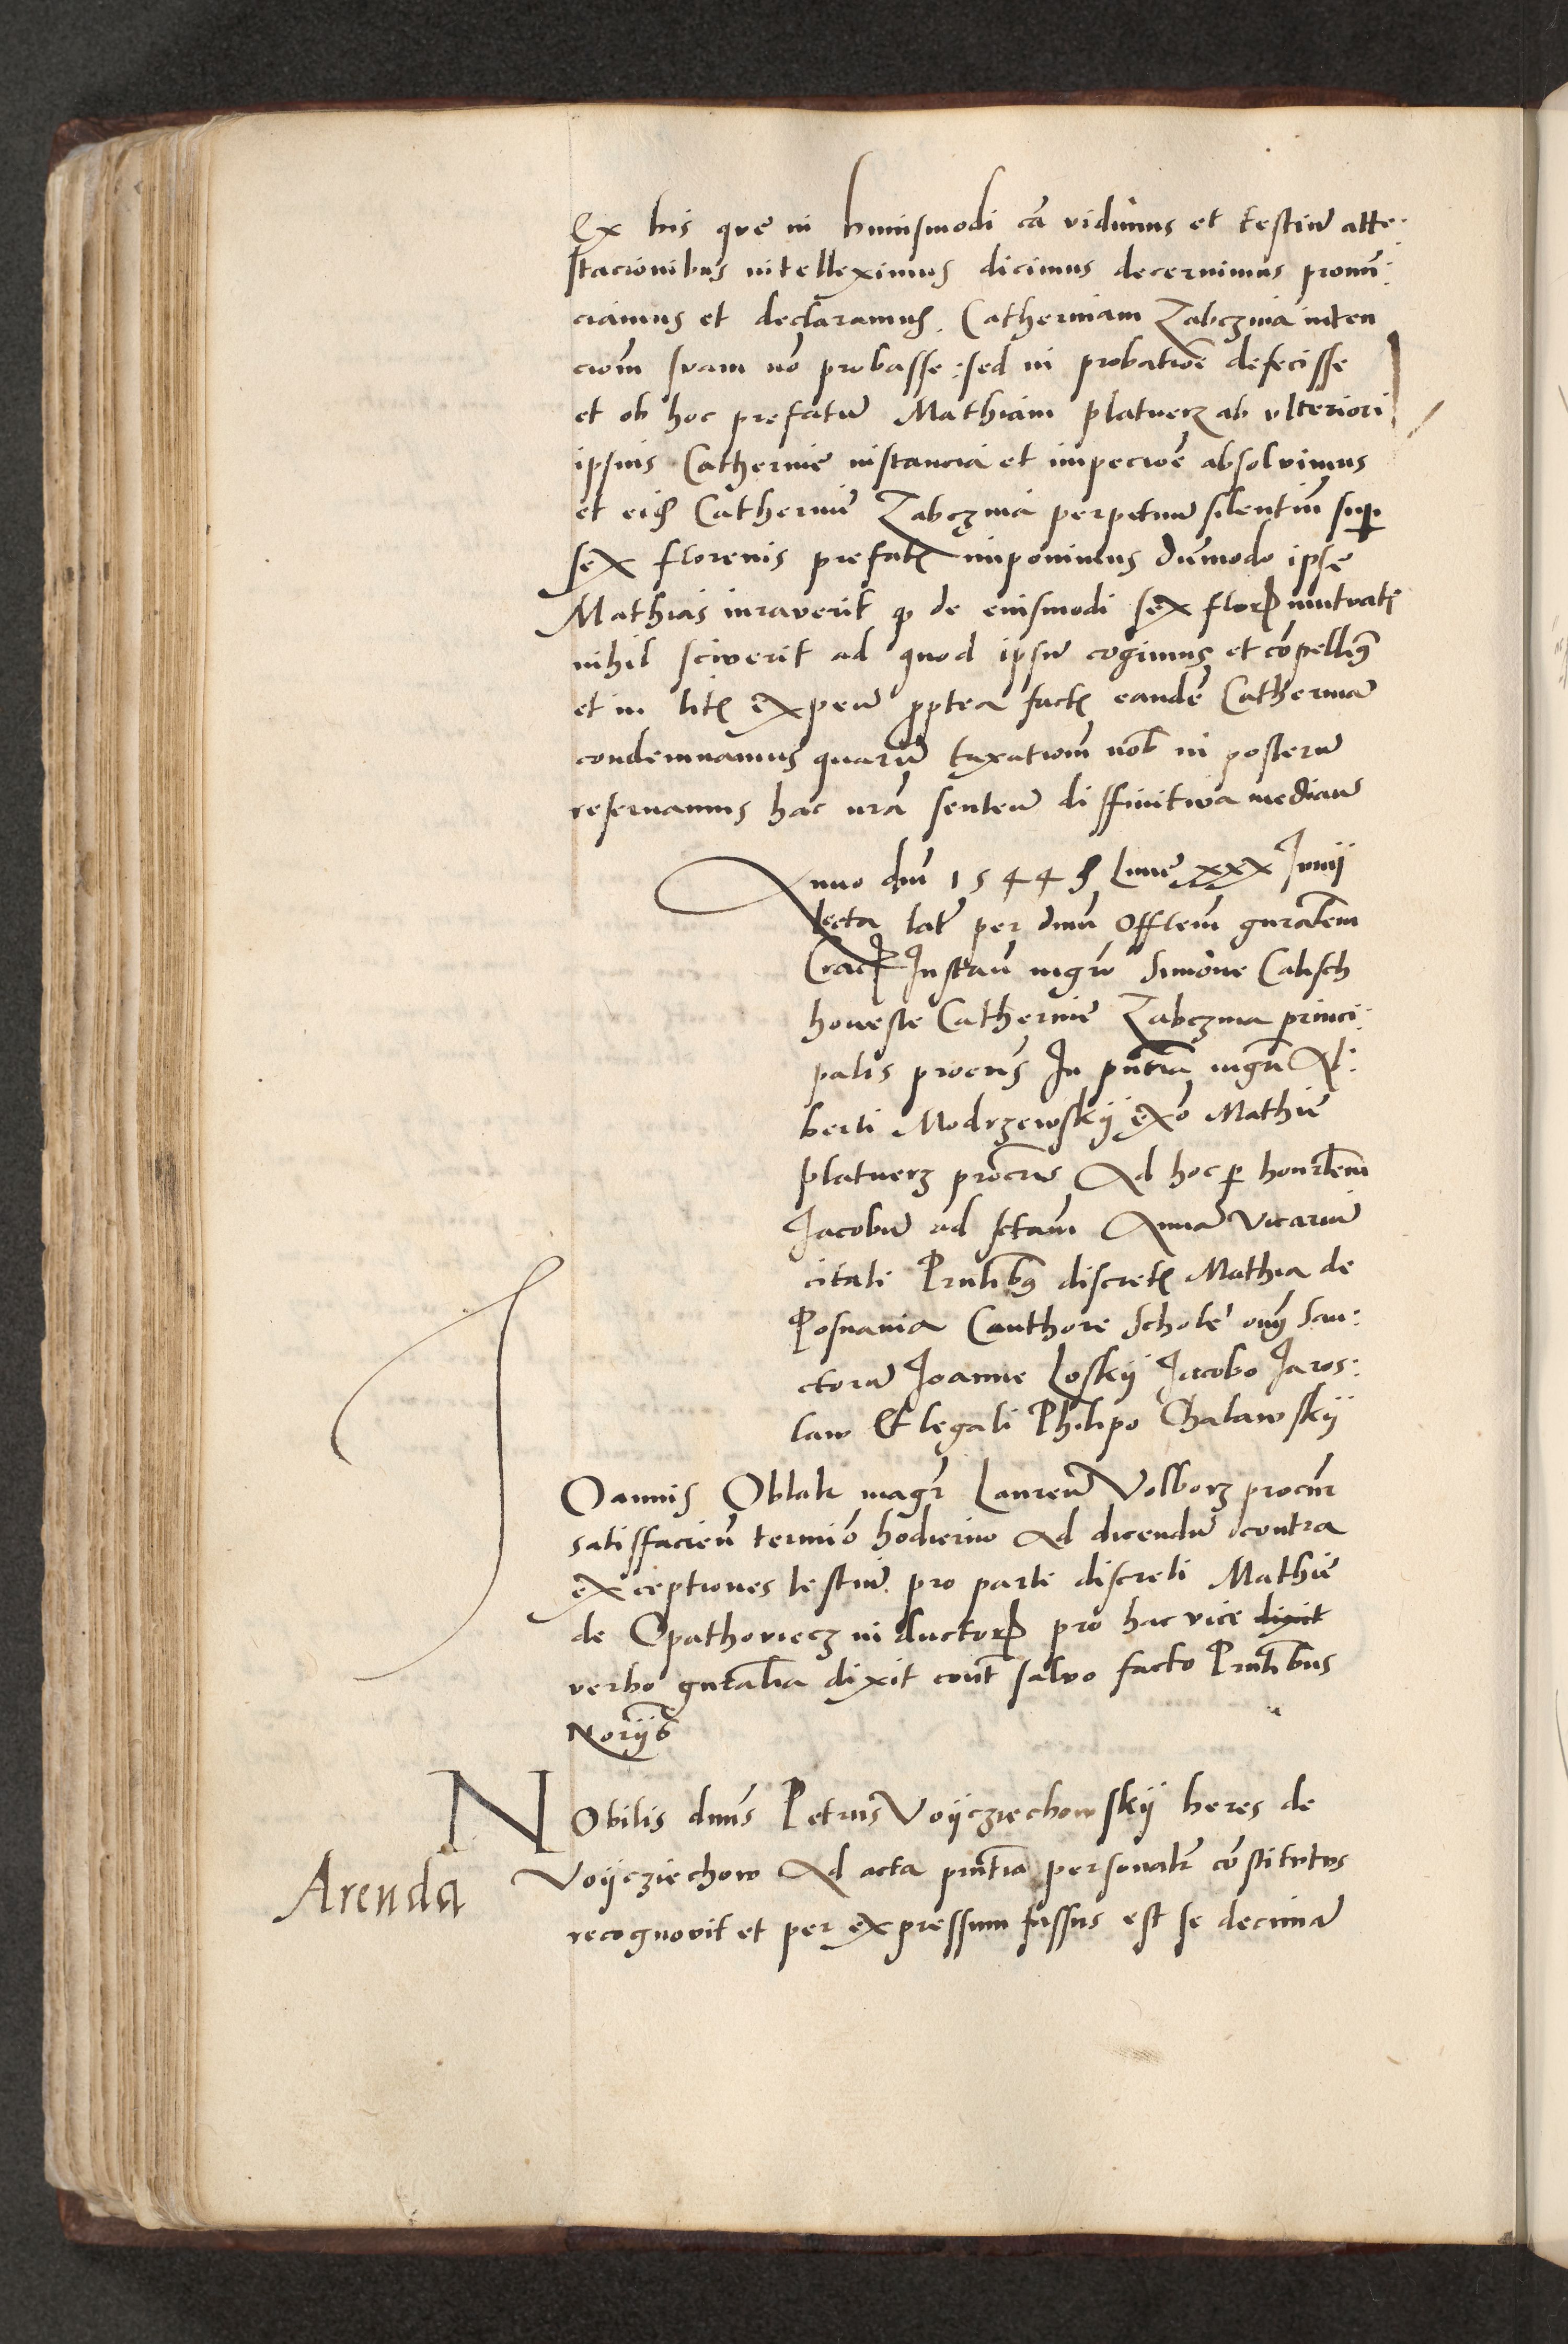 Ex his que in huiusmodi cā vidimus et testiū atte:
stacionibus intelleximus dicimus decernimus pronū:
ciamus et declaramus. Catherinam Zabczina inten
cionē suam nō probasse: sed in probatiōē defecisse
et ob hoc prefatū Mathiam platnerz ab ulteriori
ipsius Catherine instancia et impecioē absolvimus
et eidē Catherine Zabczina perpetuū silentiū sup
sex florenis prefatꝭ imponimus dūmodo ipse
Mathias iuraverit ꝙ de eiusmodi sex florꝭ mutuatꝭ
nihil sciverit ad quod ipsū cogimus et cōpellimꝰ
et in litꝭ expeñ ꝓptea factꝭ eandē Catherinā
condemnamus quarū taxationē nob in posterū
reservamus hac nrā senteñ diffinitiva mediañ
Anno dni 1544 Lune xxx Junii
lecta lat per dnm Offlem gnralem
Cracꝭ Instañ mgrō Simone Calisch
honeste Catherine Zabczina princi:
palis procūris In pntia mgri Al:
berti Modrzewskij exō Mathie
platnerz procūris Ad hoc ꝑ honrlem
Jacobū ad sctam Annā vicariū
citati Pntibꝰ discretꝭ Mathia de
Posnania Canthore Schole omꝭ San:
ctorū Joanne Loskij Jacobo Jaros:
law & legali Philipo Chalawskij
JOannis Oblak magr Laureñ Volborz procūr
satisfacieñ termiō hodierno Ad dicendū contra
exceptiones testiū pro parte discreti Mathie
de Opathoviecz in ductorꝭ pro hac vice dixit
verbo gnralia dixit cont salvo facto Pntibus
Norijs
NObilis dnus Petrus Voijcziechowskij heres de
Arenda
Voijcziechow Ad acta pntia personalr cōstitutus
recognovit et per expressum fassus est se decimā